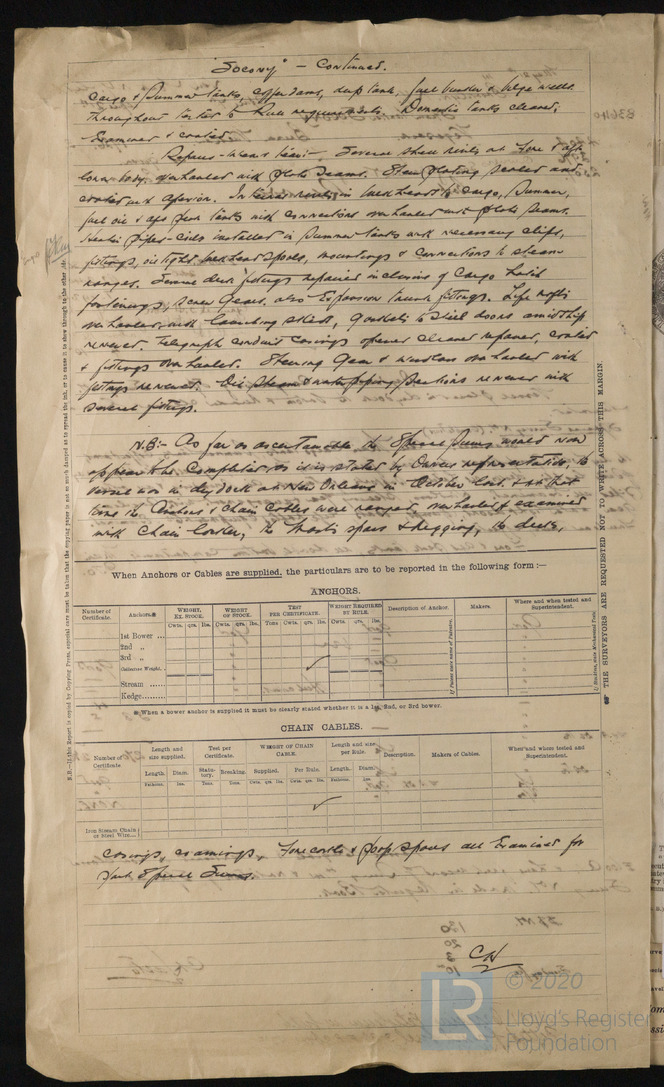 "Socony" — Continued.
Cargo & Summer tanks, cofferdams, deep tank, fuel bunker & bilge wells
throughout tested to Rule requirements. Domestic tanks cleaned,
Examined & coated.
Repairs - Wear & tear:- Several shell rivets at fore & aft
lower body overhauled with plate seams. Shell plating scaled and
coated. Internal rivets in bulkheads to Cargo, Summer,
fuel oil & aft peak tanks with connections overhauled with plate seams.
Heater pipe-coils installed in Summer tanks with necessary clips,
fittings, oil tight bulkhead spools, mountings & connections to steam
ranges. Some deck fittings repaired inclusive of Cargo hatch
fastenings, screw gears, also Expansion trunk fittings. Life rafts
overhauled with launching skids, gaskets to steel doors amidship
renewed. Telegraph conduit casings opened cleaned repaired, coated
& fittings overhauled. Steering Gear & windlass overhauled with
fittings renewed. Deck steam & water piping sections renewed with
several fittings.
N.B:- As far as ascertainable the Special Survey would now
appear to be Completed as it is stated by Owners representative, the
vessel was in dry dock at New Orleans in October last, & at that
time the Anchors & Chain Cables were ranged, overhauled & examined
with Chain locker, the Masts spars & Rigging, the decks,
When Anchors or Cables are supplied, the particulars are to be reported in the following form:—
ANCHORS.
Number of Certificate. Anchors.* WEIGHT, EX. STOCK. WEIGHT OF STOCK. TEST PER CERTIFICATE. WEIGHT REQUIRED BY RULE. Description of Anchor. Makers. Where and when tested and Superintendent.
Cwts. qrs. lbs. Cwts. qrs. lbs. Tons Cwts. qrs. lbs. Cwts. qrs. lbs.
1st Bower ...
2nd „
3rd „
Collective Weight.
Stream ......
Kedge........
* When a bower anchor is supplied it must be clearly stated whether it is a 1st, 2nd, or 3rd bower.
CHAIN CABLES.
Number of Certificate Length and size supplied. Test per Certificate. WEIGHT OF CHAIN CABLE. Length and size per Rule. Description. Makers of Cables. Where and when tested and Superintendent.
Length. Diam. Statutory. Breaking. Supplied. Per Rule. Length. Diam.
Fathoms. Ins. Tons. Tons. Cwts. qrs. lbs. Cwts. qrs. lbs. Fathoms. Ins.
Iron Stream Chain or Steel Wire...
casings, coamings, Forecastle & poop spaces all Examined for
that Special Survey.
CH
THE SURVEYORS ARE REQUESTED NOT TO WRITE ACROSS THIS MARGIN
LR © 2020
Lloyd's Register
Foundation